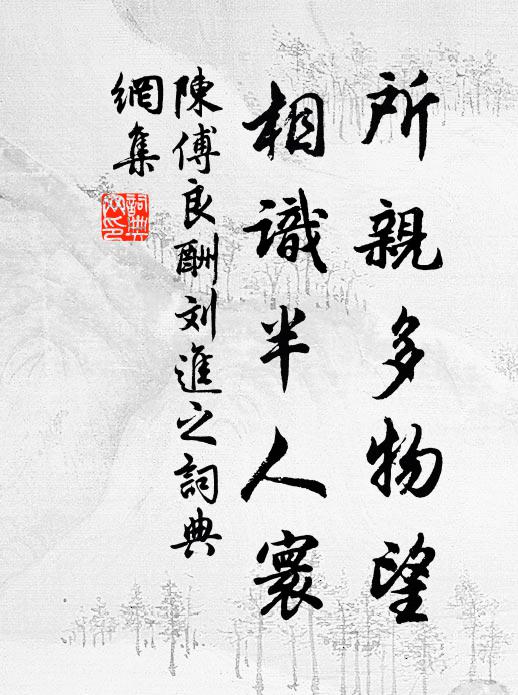 所親多物望
相識半人寰
陳傅良酬刘進之詞典
網集
詞典網印